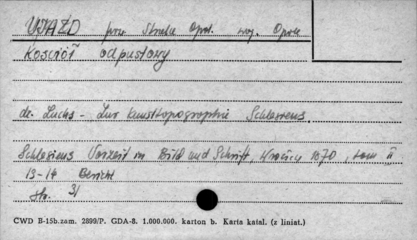 UJAZD pow. Strzelce Opol. woj. Opole
Kościół odpustowy
dr. Luchs - Zur Kunsttopographie Schlesiens.
Schlesiens Vorzeit in Bild und Schrift, Wrocław 1870, tom II
13-14 Bericht
str. 31
CWD B-15b. zam. 2899/P. GDA-8. 1.000.000. karton b. Karta katal. (z liniat.)